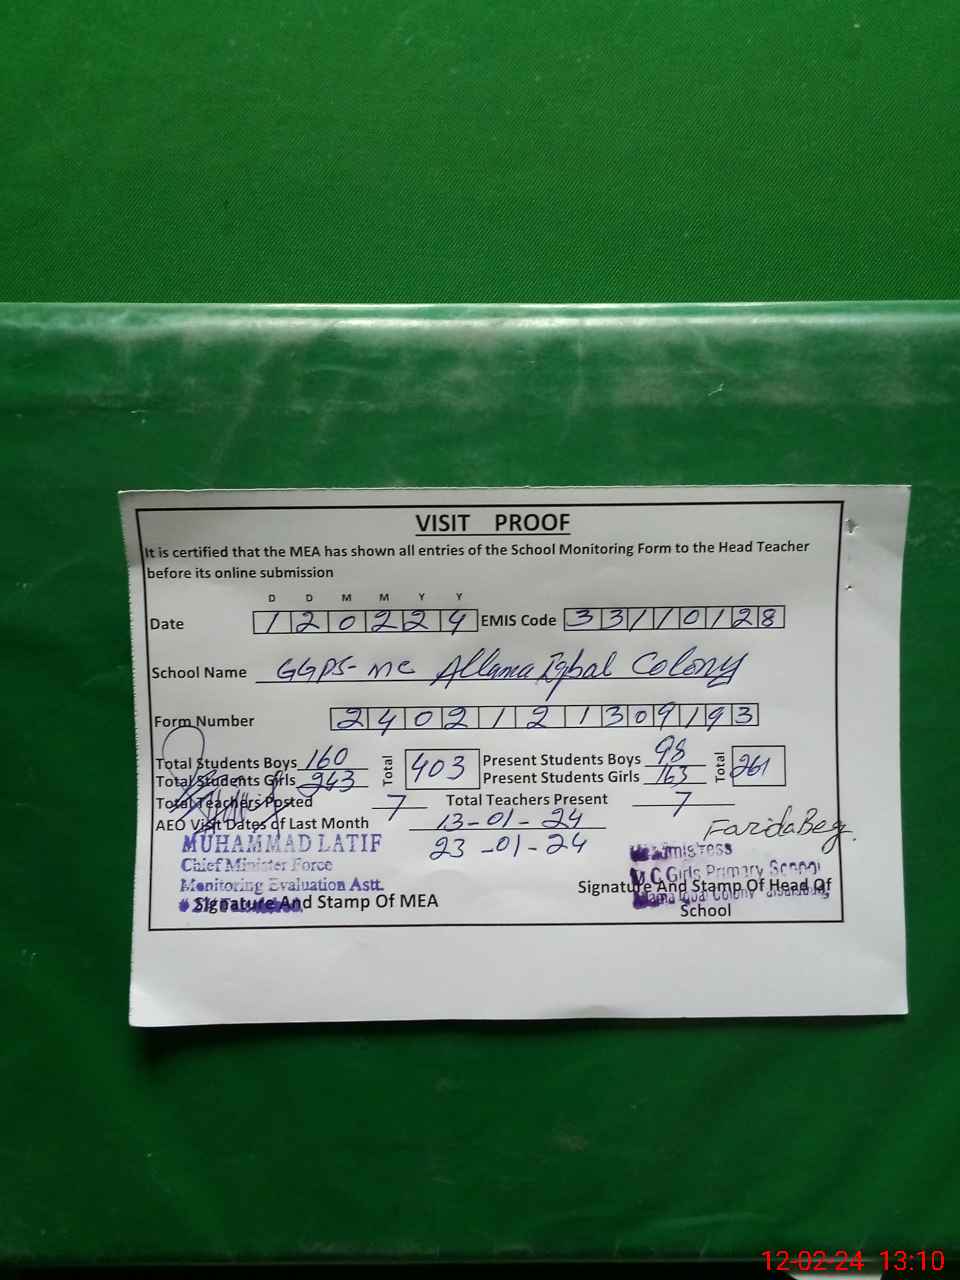 VISIT PROOF
It is certified that the MEA has shown all entries of the School Monitoring Form to the Head Teacher
before its online submission
D D M M Y Y
Date 120224 EMIS Code 33110128
School Name GGPS-MC Allama Iqbal Colony
Form Number 2402121309193
Total Students Boys 160 Total 403 Present Students Boys 98 Total 261
Total Students Girls 243 Present Students Girls 163
Total Teachers Posted 7 Total Teachers Present 7
AEO Visit Dates of Last Month 13-01-24
23-01-24
Farida Beg
MUHAMMAD LATIF
Chief Minister Force
Monitoring Evaluation Astt.
Signature And Stamp Of MEA
M.C Girls Primary School
Iqbal Colony
Signature And Stamp Of Head Of
School
12-02-24 13:10